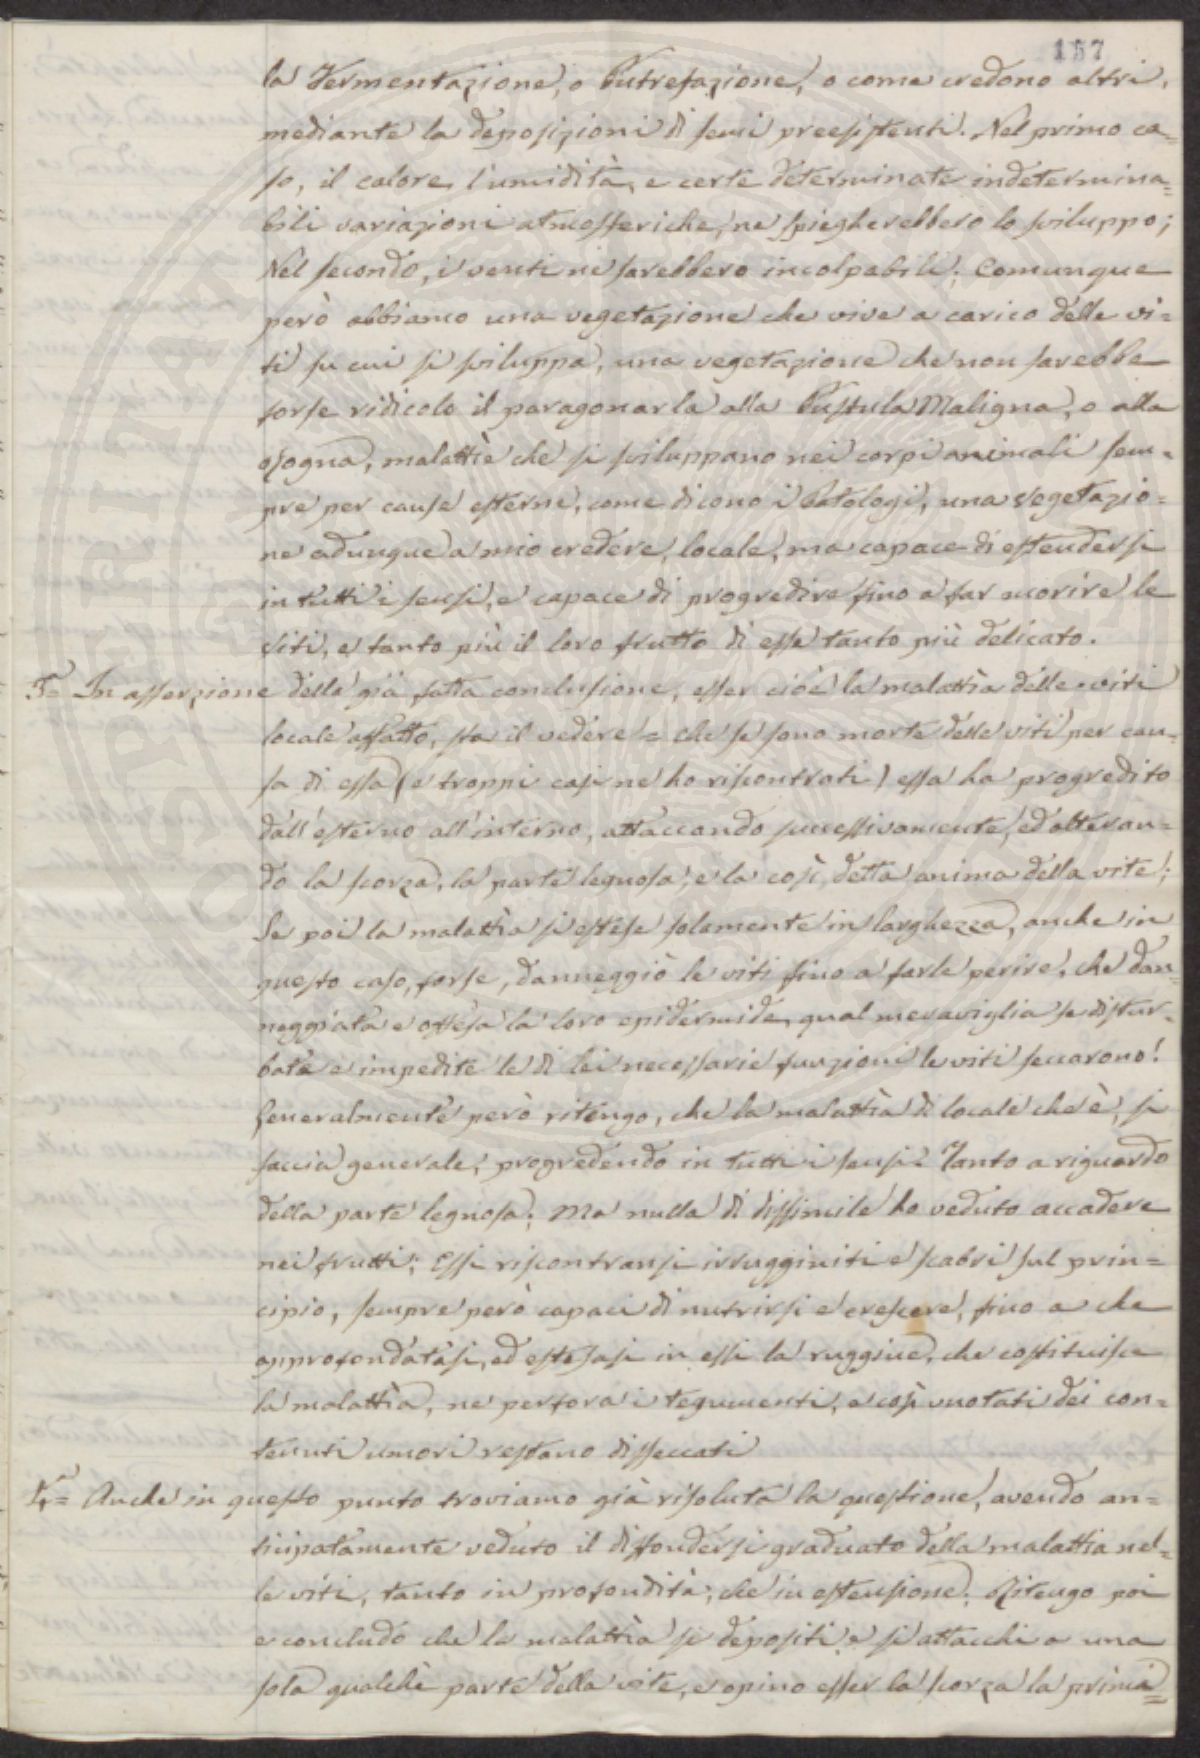 157
la Fermentazione, o Putrefazione, o come credono altri,
mediante la deposizioni di semi preesistenti. Nel primo ca=
so, il calore, l'umidità, e certe determinate indetermina=
bili variazioni atmosferiche, ne spiegherebbero lo sviluppo;
Nel secondo, i venti ne sarebbero incolpabili. Comunque
però abbiamo una vegetazione che vive a carico delle vi=
ti su cui si sviluppa, una vegetazione che non sarebbe
forse ridicolo il paragonarla alla Pustula Maligna, o alla
, malattie che si sviluppano nei corpi animali sem=
pre per cause esterne, come dicono i Patologi, una vegetazio=
ne adunque a mio credere, locale, ma capace di estendersi
in tutti i sensi, e capace di progredire fino a far morire le
viti, e tanto più il loro frutto di esse tanto più delicato.
3ª= In asserzione della già fatta conclusione, esser cioè la malattia delle viti
locale affatto, sta il vedere = che se sono morte delle viti per cau=
sa di essa (e troppi casi ne ho riscontrati) essa ha progredito
dall'esterno all'interno, attaccando successivamente, ed alteran=
do la scorza, la parte legnosa, e la così detta anima della vite;
Se poi la malattia si estese solamente in larghezza, anche in
questo caso, forse, danneggiò le viti fino a farle perire, che dan=
neggiata e offesa la loro epidermide, qual meraviglia se distur=
bate e impedite le di lei necessarie funzioni le viti seccarono!
Generalmente però ritengo, che la malattia di locale che è, si
faccia generale, progredendo in tutti i sensi. Tanto a riguardo
della parte legnosa. Ma nulla di dissimile ho veduto accadere
nei frutti; Essi riscontransi irrugginiti e scabri sul prin=
cipio, sempre però capaci di nutrirsi e crescere, fino a che
approfondatasi, ed estesasi in essi la ruggine, che costituisce
la malattia, ne perfora i tegumenti, e così vuotati dei con=
tenuti umori restano disseccati
4ª= Anche in questo punto troviamo già risoluta la questione, avendo an=
ticipatamente veduto il diffondersi graduato della malattia nel=
le viti, tanto in profondità, che in estensione. Ritengo poi
e concludo che la malattia si depositi e si attacchi a una
sola qualche parte della vite, e opino esser la scorza la prima=